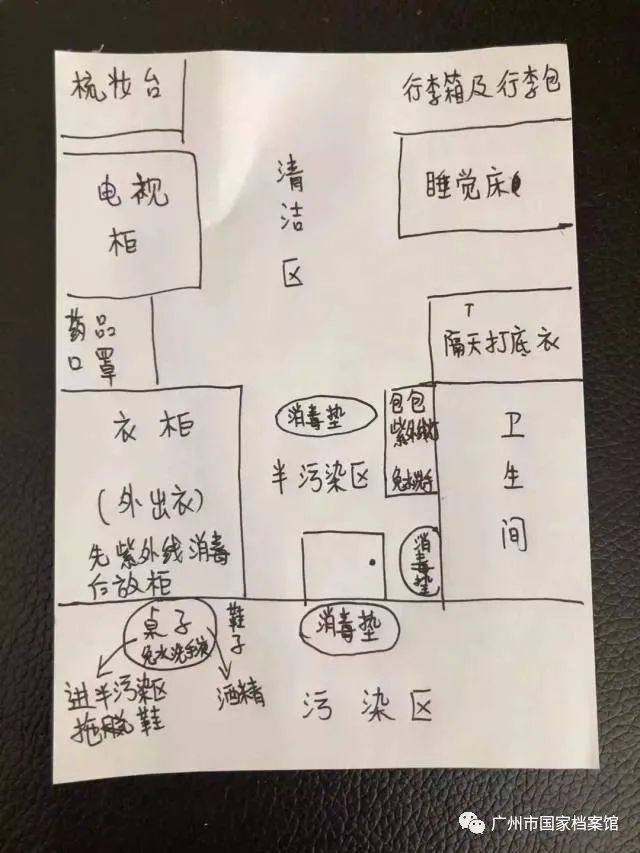 梳妆台
行李箱及行李包
清洁区
电视
柜
睡觉床
药品
口罩
隔天打底衣
衣柜
(外出衣)
先紫外线消毒
后放柜
消毒垫
半污染区
包包
紫外线灯
免水洗手
卫生间
消毒垫
桌子
免水洗手液
鞋子
消毒垫
进半污染区
拖脱鞋
酒精
污染区
广州市国家档案馆